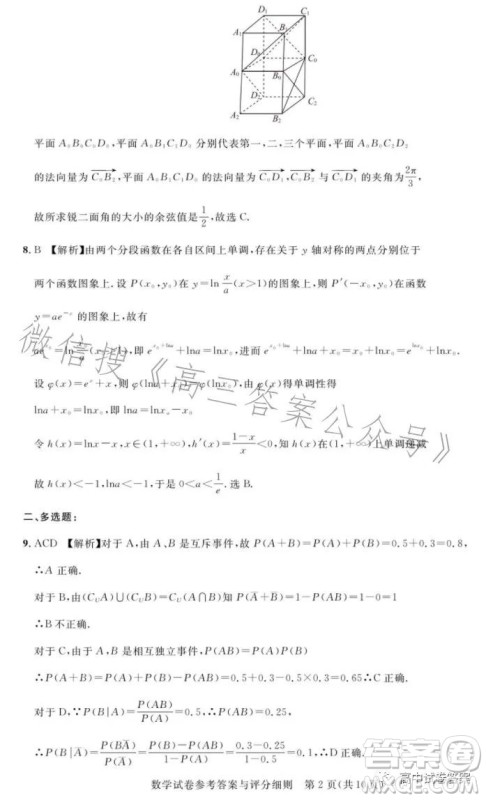 D₁
C₁
A₁
B₁
A₀
B₀
C₀
D₂
C₂
A₂
B₂
平面 A₀B₀C₀D₀,平面 A₀B₁C₁D₀ 分别代表第一,二,三个平面,平面 A₀B₀C₂D₂
的法向量为 C₀B₂,平面 A₀B₁C₁D₀ 的法向量为 C₀D₁,C₀B₂ 与 C₀D₁ 的夹角为 2π/3,
故所求锐二面角的大小的余弦值是 1/2,故选 C.
8. B 【解析】由两个分段函数在各自区间上单调,存在关于 y 轴对称的两点分别位于
两个函数图象上. 设 P(x₀,y₀)在 y=ln x/a (x>1)的图象上,则 P′(-x₀,y₀)在函数
y=ae⁻ˣ 的图象上,故有
=ln ,即 +lna=lnx₀,进而
设 φ(x)=eˣ+x,则 φ(lna+x₀)=φ(lnx₀),由 φ(x)得单调性得
lna+x₀=lnx₀,即 lna=lnx₀-x₀.
令 h(x)=lnx-x,x∈(1,+∞),h′(x)=(1-x)/x<0,知 h(x)在(1,+∞)上单调递减
故 h(x)<-1,lna<-1,于是 0<a<1/e. 选 B.
二、多选题:
9. ACD 【解析】对于 A,由 A、B 是互斥事件,故 P(A+B)=P(A)+P(B)=0.5+0.3=0.8,
∴A 正确.
对于 B,由(C_U A)∪(C_U B)=C_U(A∩B)知 P(A̅+B̅)=1-P(AB)=1-0=1
∴B 不正确.
对于 C,由于 A、B 是相互独立事件,P(AB)=P(A)×P(B)
∴P(A+B)=P(A)+P(B)-P(AB)=0.5+0.3-0.5×0.3=0.65∴C 正确.
对于 D,∵P(B|A)=P(AB)/P(A)=0.5,∴P(AB)=0.25,
∴P(B|A̅)=P(BA̅)/P(A̅)=(P(B)-P(AB))/(1-P(A))=(0.3-0.25)/(1-0.5)=0.1,∴D 正确.
数学试卷参考答案与评分细则 第 2 页(共 10 页)
微信搜《高三答案公众号》
高中试卷答案